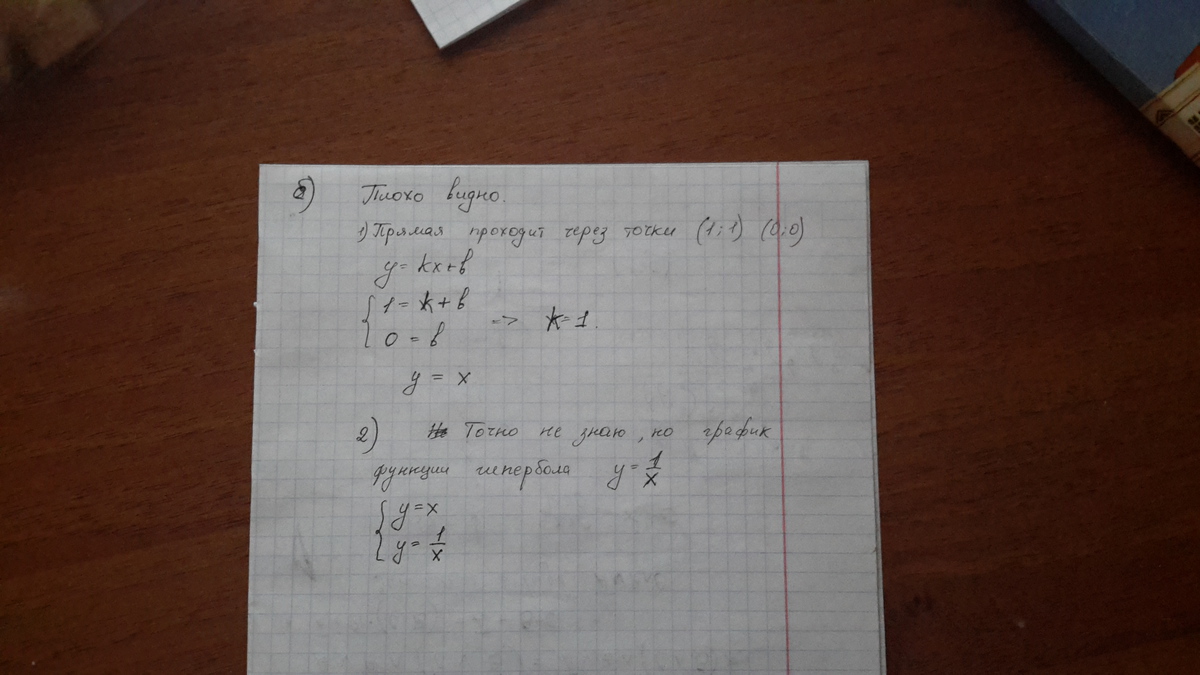 б) Плохо видно.
1) Прямая проходит через точки (1;1) (0;0)
y = kx+b
{ 1 = k + b
0 = b => k=1.
y = x
2) Точно не знаю, но график
функции гипербола y = 1/x
{ y = x
y = 1/x